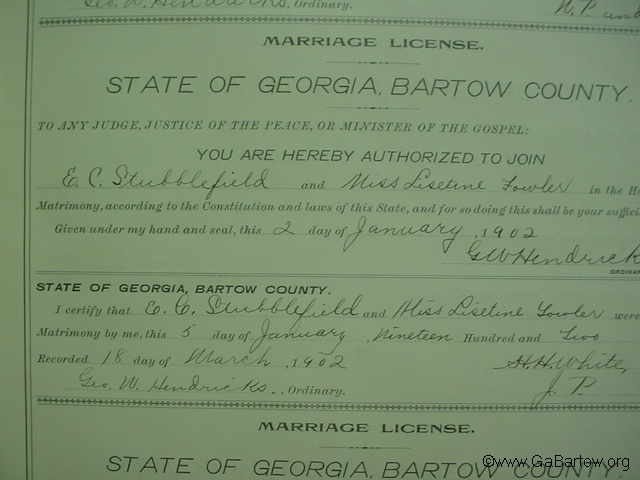 Geo. W. Hendricks, Ordinary.
MARRIAGE LICENSE.
STATE OF GEORGIA, BARTOW COUNTY.
TO ANY JUDGE, JUSTICE OF THE PEACE, OR MINISTER OF THE GOSPEL:
YOU ARE HEREBY AUTHORIZED TO JOIN
E. C. Stubblefield and Miss Lisetine Fowler in the Ho
Matrimony, according to the Constitution and laws of this State, and for so doing this shall be your suffici
Given under my hand and seal, this 2 day of January, 1902
G W Hendricks
ORDINAR
STATE OF GEORGIA, BARTOW COUNTY.
I certify that E. C. Stubblefield and Miss Lisetine Fowler were
Matrimony by me, this 5 day of January, Nineteen Hundred and Two
Recorded 18 day of March, 1902 H. H. White,
Geo. W. Hendricks., Ordinary. J. P.
MARRIAGE LICENSE.
STATE OF GEORGIA, BARTOW COUNTY.
©www.GaBartow.org